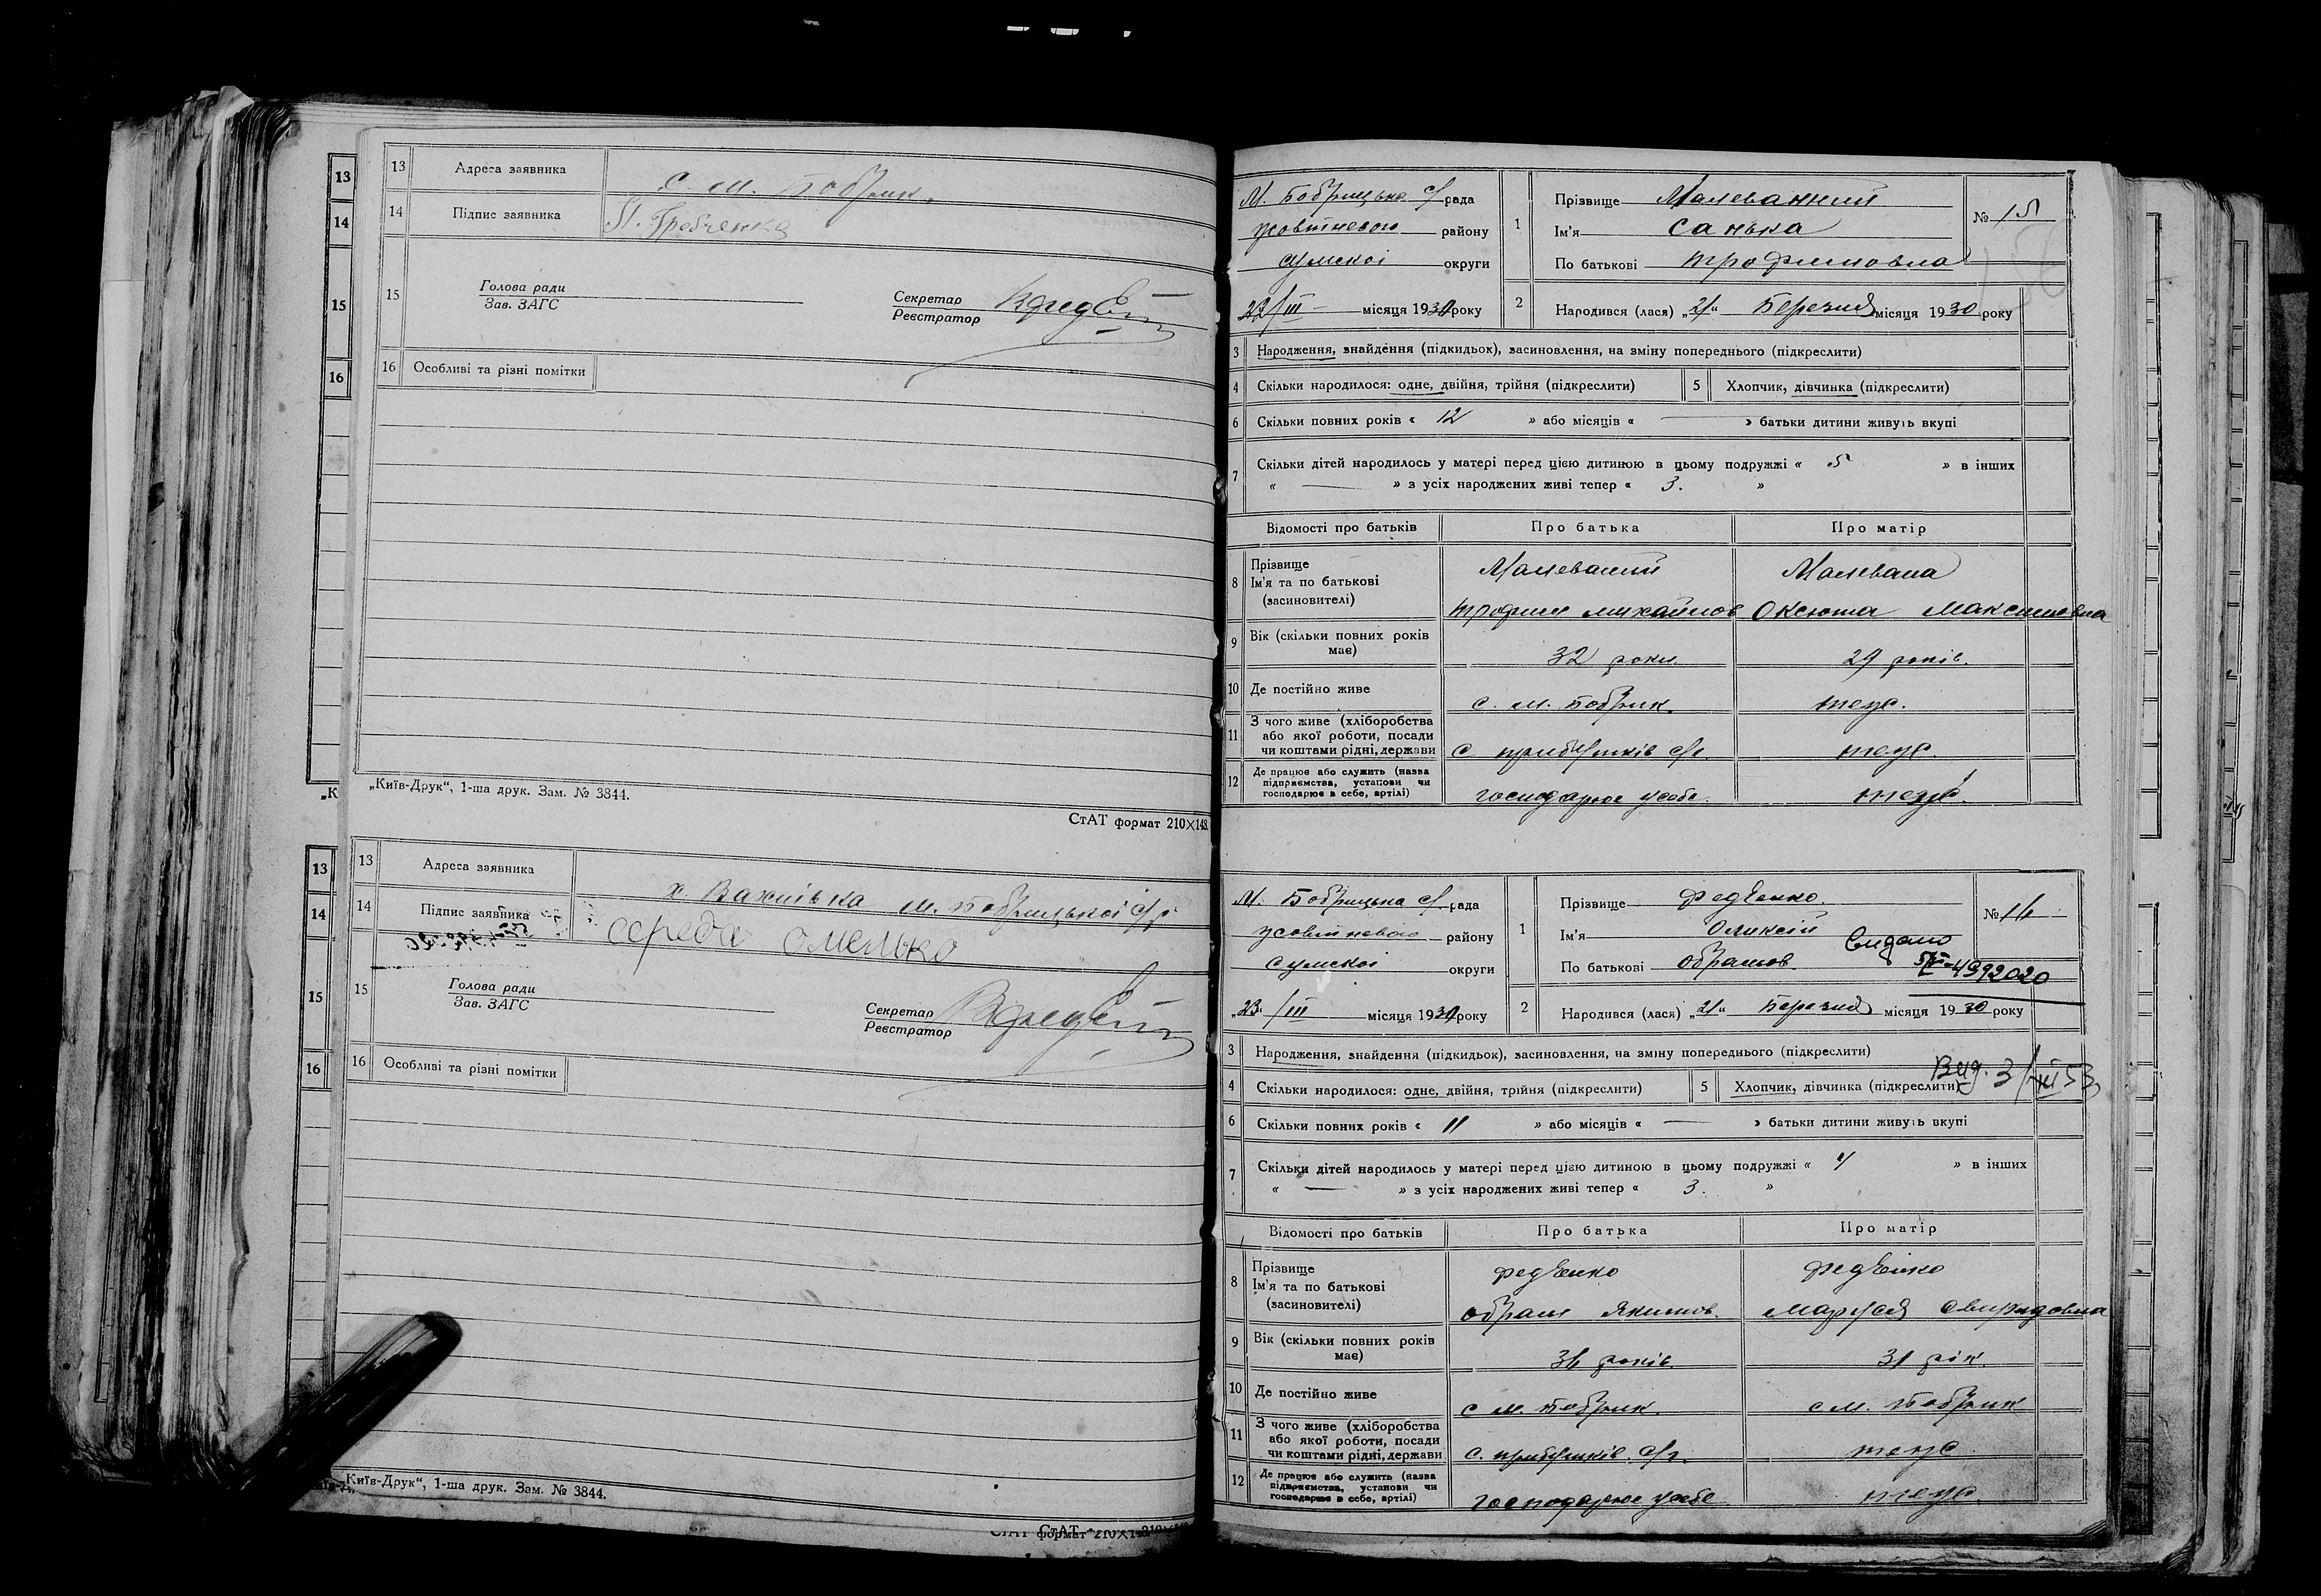 13 Адреса заявника с. м. Бобрик.
14 Підпис заявника П. Гребченко
15 Голова ради
Зав. ЗАГС
Секретар
Реєстратор
16 Особливі та різні помітки
„Київ-Друк“, 1-ша друк. Зам. № 3844.
СтАТ формат 210×148
13 Адреса заявника х. Важнівка м. Бобрицької с/р
14 Підпис заявника середа омелько
15 Голова ради
Зав. ЗАГС
Секретар
Реєстратор
16 Особливі та різні помітки
„Київ-Друк“, 1-ша друк. Зам. № 3844.
СтАТ формат 210×148
М. Бобрицька с/рада
жовтневого району
сумскої округи
22/III місяця 1930 року
1 Прізвище Малеванний
Ім'я Санька
По батькові трофимовна
№ 15
2 Народився (лася) „21“ Березня місяця 1930 року
3 Народження, знайдення (підкидьок), засиновлення, на зміну попереднього (підкреслити)
4 Скільки народилося: одне, двійня, трійня (підкреслити) 5 Хлопчик, дівчинка (підкреслити)
6 Скільки повних років « 12 » або місяців « — » батьки дитини живуть вкупі
7 Скільки дітей народилось у матері перед цією дитиною в цьому подружжі « 5 » в інших
« — » з усіх народжених живі тепер « 3. »
Відомості про батьків Про батька Про матір
8 Прізвище Малеваний Малевана
Ім'я та по батькові
(засиновителі) трофим михайлов Оксюта Максимовна
9 Вік (скільки повних років
має) 32 роки. 29 років.
10 Де постійно живе с. м. Бобрик. теж.
11 З чого живе (хліборобства
або якої роботи, посади
чи коштами рідні, держави с прибутків с/г. теж.
12 Де працює або служить (назва
підприємства, установи чи
господарює в себе, артілі) господарює у себе. теж.
М. Бобрицька с/рада
жовтневого району
сумскої округи
„23“/III місяця 1930 року
1 Прізвище Федченко.
Ім'я Оликсій
По батькові обрамов.
№ 16
Видано
4992020
2 Народився (лася) „21“ Березня місяця 1930 року
3 Народження, знайдення (підкидьок), засиновлення, на зміну попереднього (підкреслити)
4 Скільки народилося: одне, двійня, трійня (підкреслити) 5 Хлопчик, дівчинка (підкреслити)
6 Скільки повних років « 11 » або місяців « — » батьки дитини живуть вкупі
7 Скільки дітей народилось у матері перед цією дитиною в цьому подружжі « 4 » в інших
« — » з усіх народжених живі тепер « 3. »
Відомості про батьків Про батька Про матір
8 Прізвище Федченко Федченко
Ім'я та по батькові
(засиновителі) обрам Якимов. маруся свиридовна
9 Вік (скільки повних років
має) років 31 рік.
10 Де постійно живе с м. Бобрик. с м. Бобрик
11 З чого живе (хліборобства
або якої роботи, посади
чи коштами рідні, держави с. прибутків с/г. теж
12 Де працює або служить (назва
підприємства, установи чи
господарює в себе, артілі) господарює у себе теж.